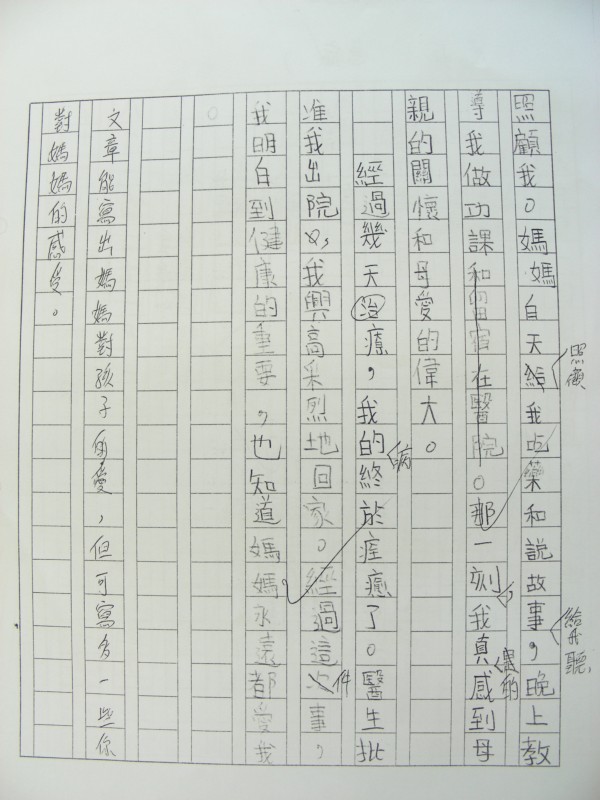 照顧我。媽媽白天給我吃藥和說故事，晚上教
照顧
給我聽
導我做功課和留宿在醫院。那一刻，我真感到母
親的關懷和母愛的偉大。
經過幾天治療，我的終於痊癒了。醫生批
病
准我出院，我興高采烈地回家。經過這次事，
件
我明白到健康的重要，也知道媽媽永遠都愛我
。
文章能寫出媽媽對孩子的愛，但可寫多一些你
對媽媽的感受。